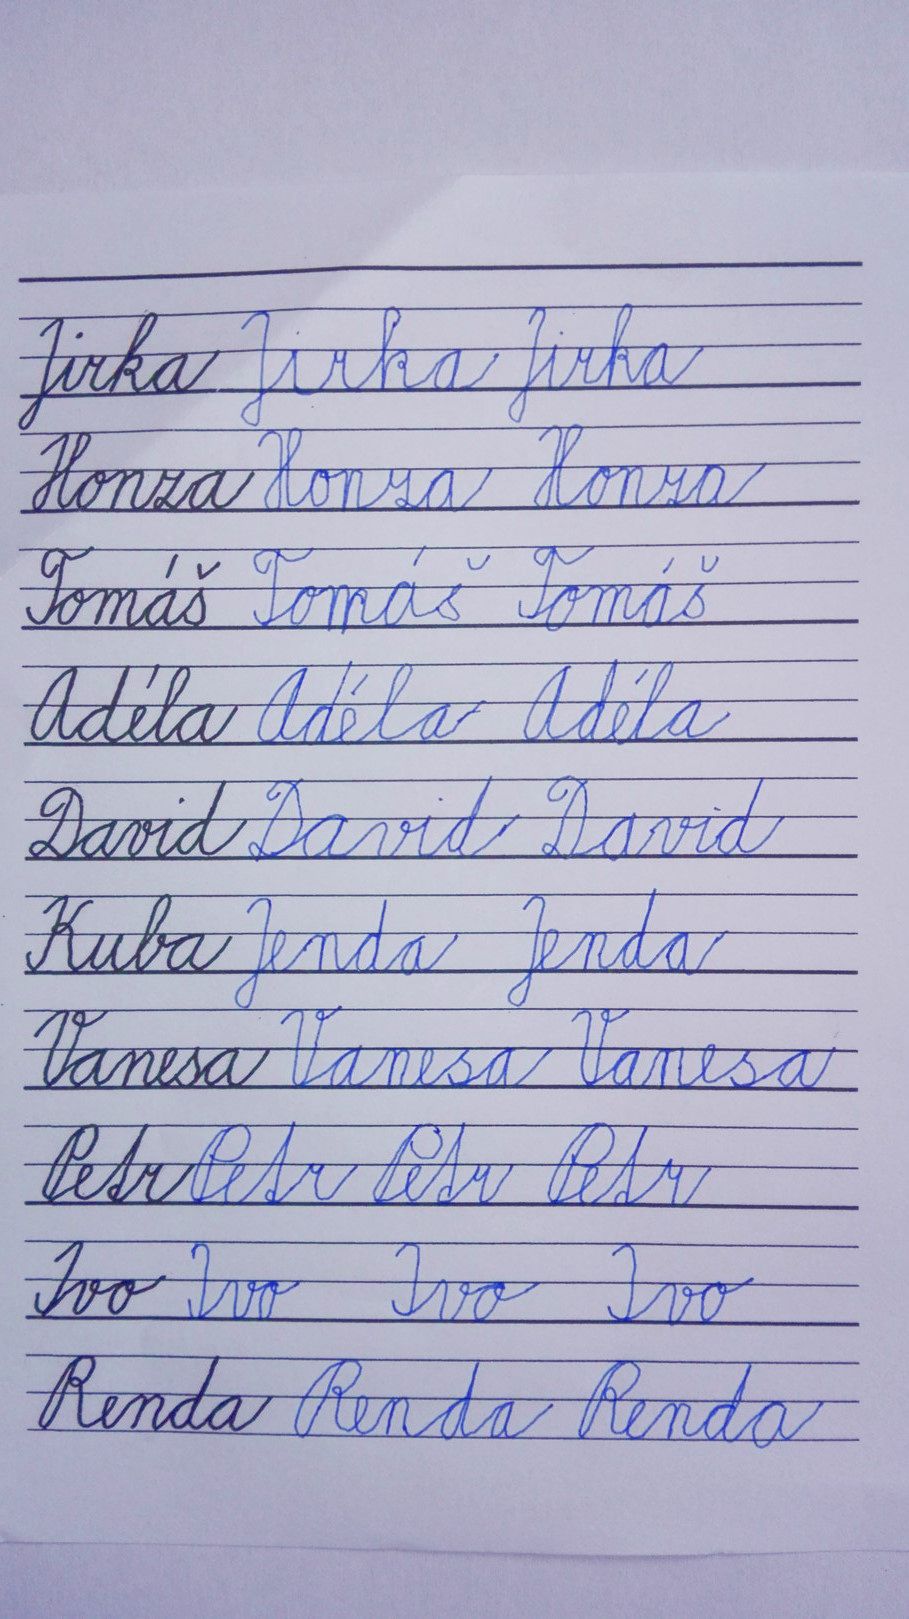 Jirka Jirka Jirka
Honza Honza Honza
Tomáš Tomáš Tomáš
Adéla Adéla Adéla
David David David
Kuba Jenda Jenda
Vanesa Vanesa Vanesa
Petr Petr Petr Petr
Ivo Ivo Ivo Ivo
Renda Renda Renda